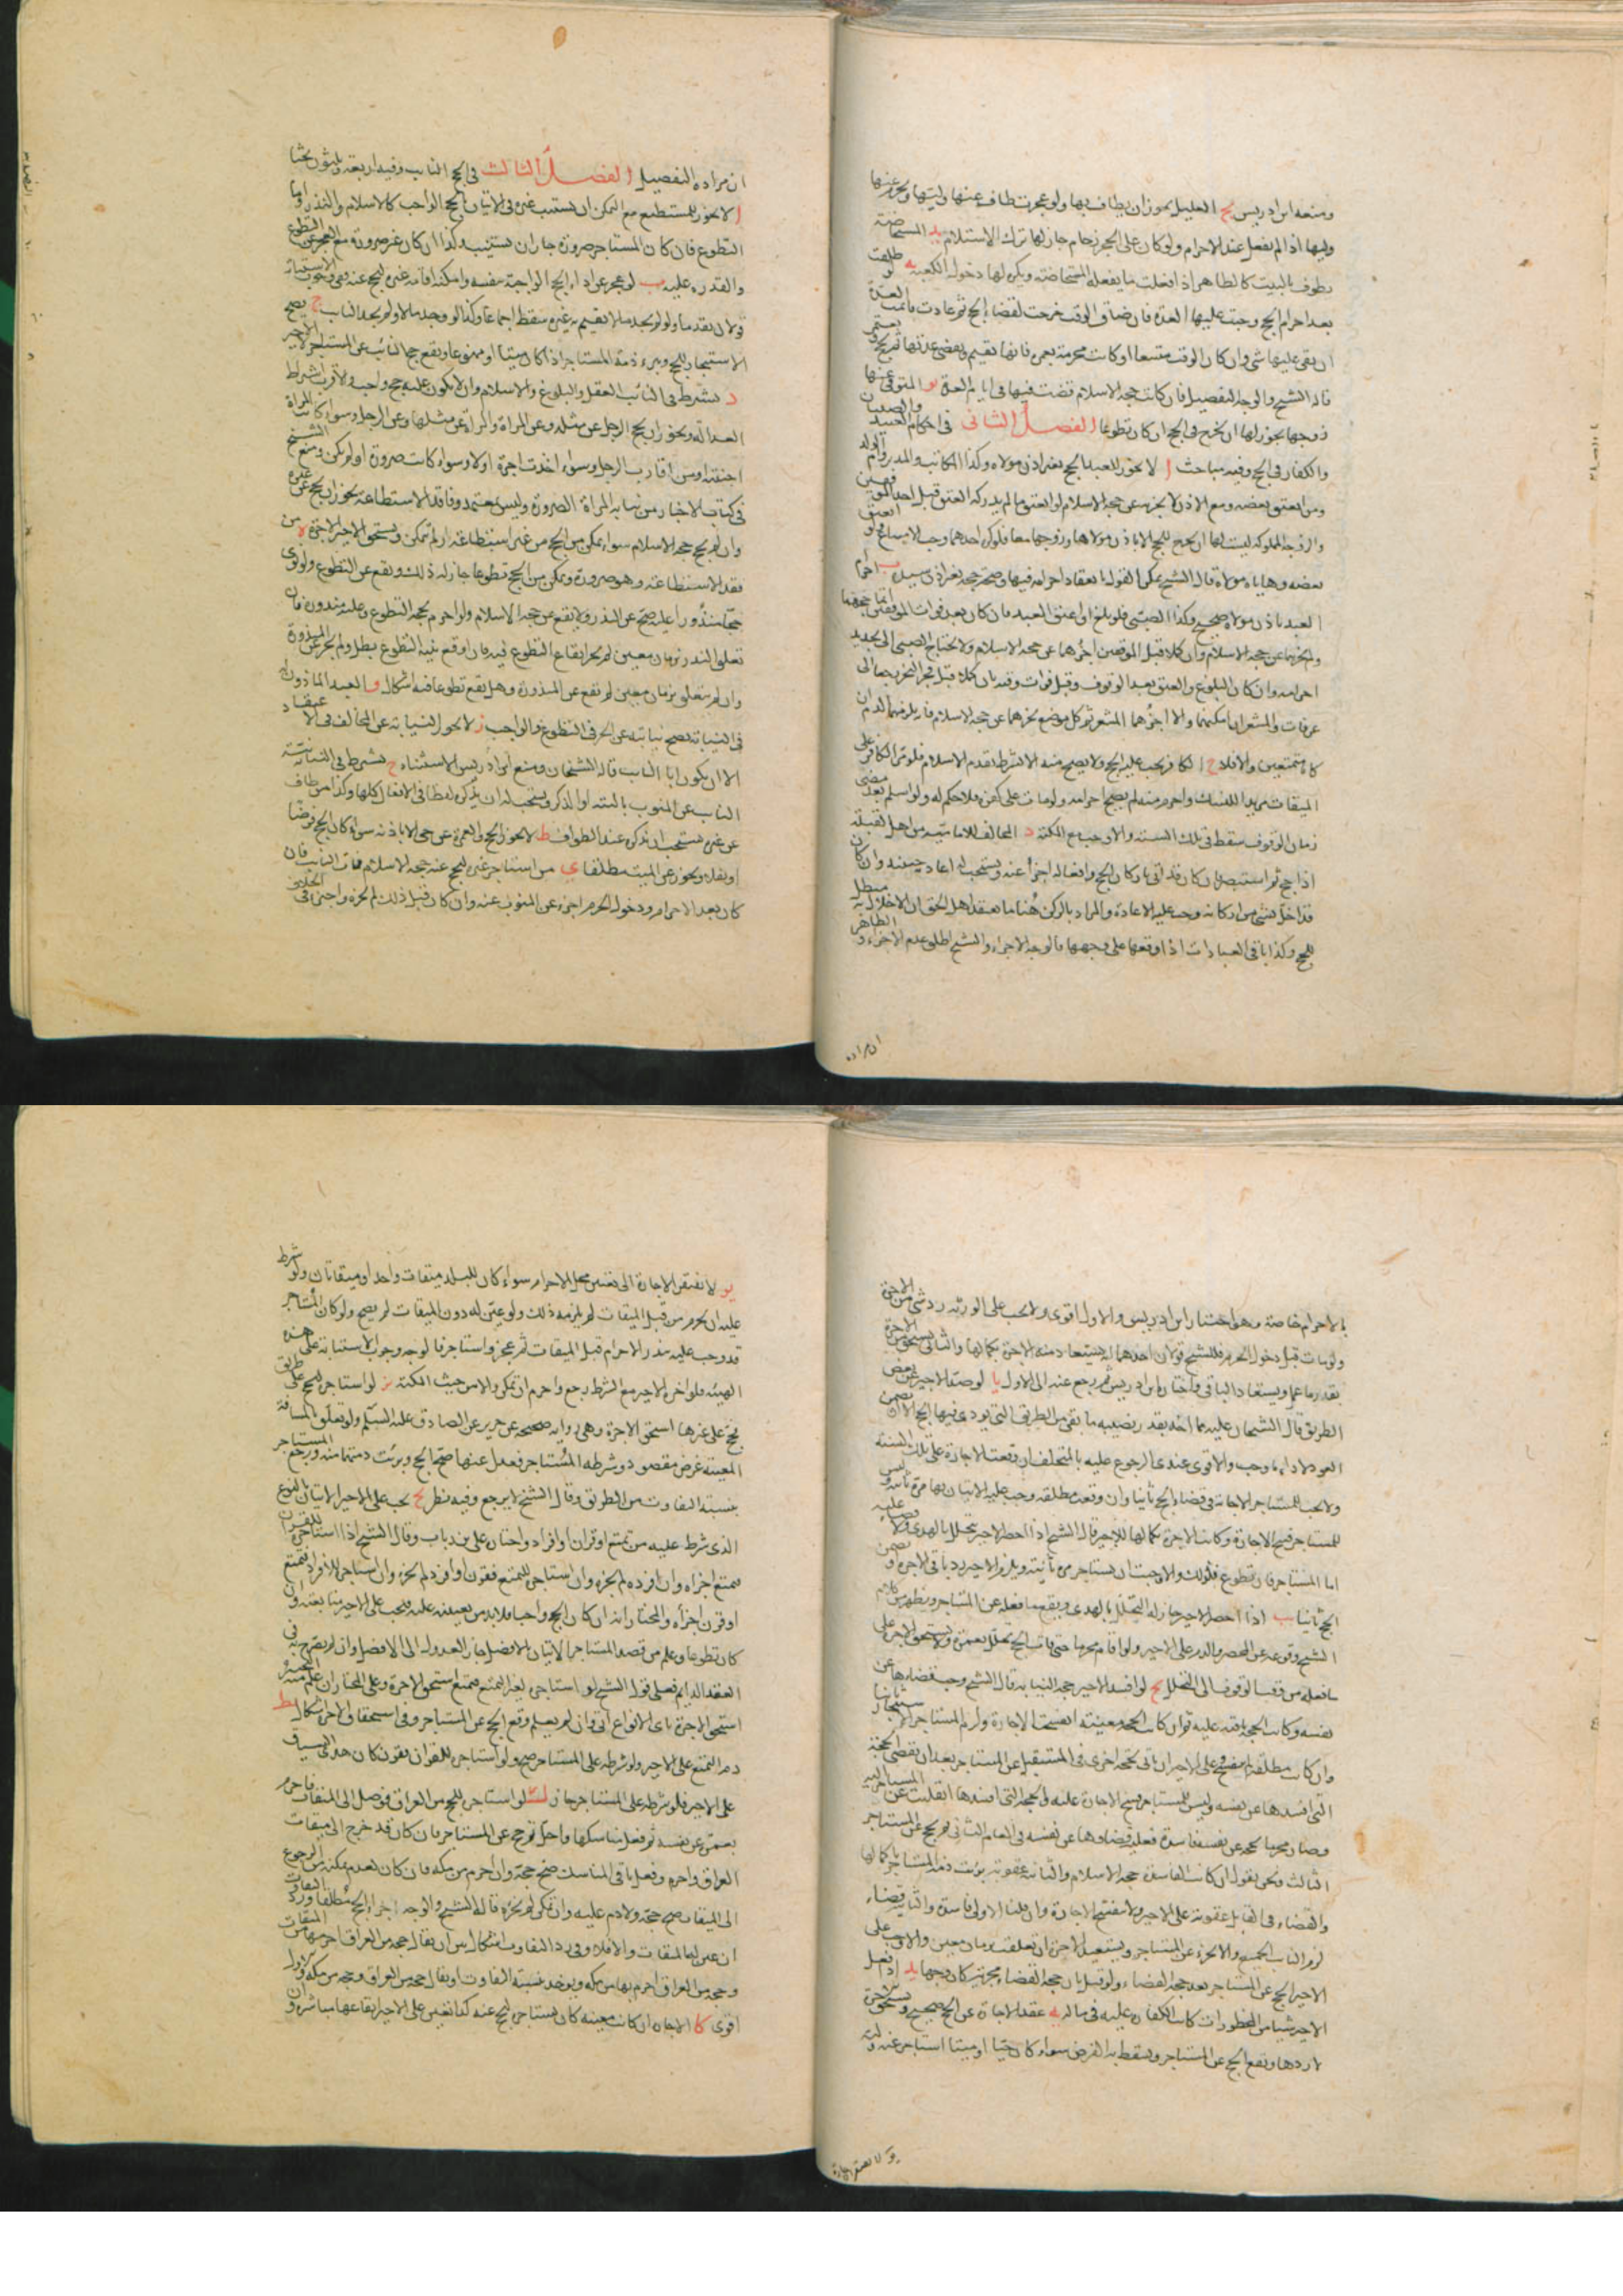 ومنعه ابن ادريس يج العليل يجوز ان يطاف بها ولو عجزت طاف عنها وليها ويحرم عنها
وليها اذا لم يفعل عند الاحرام ولو كان على الحجر زحام جاز لها ترك الاستلام يد المستحاضة
تطوف بالبيت كالطاهر اذا فعلت ما يفعله المستحاضة ويكره لها دخول الكعبة يه لو طلقت
بعد احرام الحج وجبت عليها العدة فان ضاق الوقت خرجت لقضاء الحج ثم عادت فاتمت العدة
ان بقي عليها شي وان كان الوقت متسعا او كانت محرمة بعمرة فانها تقيم وتقضي عدتها ثم يحج و تعتمر
قاله الشيخ والوجه التفصيل فان كانت حجة الاسلام قضت فيها في ايام العدة يو المتوفى عنها
زوجها يجوز لها ان تخرج في الحج وان كان تطوعا الفصل الثاني في احكام العبيد والصبيان
والكفار في الحج وفيه مباحث ا لا يجوز للعبد الحج بغير اذن مولاه وكذا المكاتب والمدبر وام الولد
ومن اعتق بعضه ومع الاذن لا يجزيه عن حجة الاسلام لو اعتق ما لم يدركه العتق قبل احد الموقفين
والزوجة المملوكة ليس لها ان تخرج للحج الا باذن مولاها وزوجها معا فلو كره احدهما وجب الامتناع ولو اعتق
بعضه وهاياه مولاه قال الشيخ يمكن القول بانعقاد احرامه فيها وصحة حجه بغير اذن سيده ب احرام
العبد باذن مولاه صحيح وكذا الصبي فلو بلغ او اعتق العبد فان كان بعد فوات الموقفين اتما حجهما
ولم يجزهما عن حجة الاسلام وان كملا قبل الموقفين اجزأهما عن حجة الاسلام ولا يحتاج الصبي الى تجديد
احرامه وان كان البلوغ والعتق بعد الوقوف وقبل فوات وقته بان كملا قبل فجر النحر رجعا الى
عرفات والمشعر ان امكنهما والا اجزأهما المشعر ثم كل موضع يجزيهما عن حجة الاسلام فانه يلزمهما الدم ان
كانا متمتعين والا فلا ج الكافر يجب عليه الحج ولا يصح منه الا بشرط تقدم الاسلام فلو مر الكافر على
الميقات مريدا للنسك واحرم منه لم يصح احرامه ولو مات على كفره فلا حكم له ولو اسلم بعد مضي
زمان الوقوف سقط في تلك السنة والا وجب مع المكنة د المخالف للامامية من اهل القبلة
اذا حج ثم استبصر فان كان قد اتى باركان الحج وافعاله اجزأ عنه ويستحب له اعادته وان كان
قد اخل بشي من اركانه وجب عليه الاعادة والمراد بالركن هنا ما يعتقد اهل الحق ان الاخلال به مبطل
للحج وكذا باقي العبادات اذا اوقعها على وجهها فالوجه الاجزاء والشيخ اطلق عدم الاجزاء و الظاهر
ان مراده
ان مراده التفصيل الفصل الثالث في الحج النايب وفيه اربعة وثلثون بحثا
ا لا يجوز للمستطيع مع التمكن ان يستنيب غيره في الاتيان بالحج الواجب كالاسلام والنذر واما
التطوع فان كان المستاجر صرورة جاز ان يستنيب وكذا ان كان غير صرورة مع العجز عن التطوع
والقدرة عليه ب لو عجز عن اداء الحج الواجب بنفسه وامكنه اقامة غيره ليحج عنه ففي وجوب الاستنابة
قولان تقدما ولو لم يجد ما لا يقيم به غيره سقط اجماعا وكذا لو وجد مالا ولم يجد النايب ج يصح
الاستيجار للحج ويبرء ذمة المستاجر اذا كان ميتا او ممنوعا ويقع حج النائب عن المستاجر لا الاجير
د يشترط في النائب العقل والبلوغ والاسلام وان لا يكون عليه حج واجب والاقرب اشتراط
العدالة ويجوز ان يحج الرجل عن مثله وعن المراة والمراة عن مثلها وعن الرجل وسواء كانت المراة
اجنبية او من اقارب الرجل وسواء اخذت اجرة اولا وسواء كانت صرورة او لم تكن ومنع الشيخ
في كتاب الاخبار من نيابة المراة الصرورة وليس بمعتمد وفاقد الاستطاعة يجوز ان يحج عن غيره
وان لم يحج حجة الاسلام سواء تمكن من الحج من غير استطاعة او لم يتمكن ويستحق الاجير الاجرة ه من
فقد الاستطاعة وهو صرورة وتمكن من الحج تطوعا جاز له ذلك ويقع عن التطوع ولو نوى
حجا منذورا عليه صح عن النذر ولا يقع عن حجة الاسلام ولو احرم بحجة التطوع وعليه منذورة فان
تعلق النذر بزمان معين لم يجز ايقاع التطوع فيه فان اوقع بنية التطوع بطل ولم يجز عن المنذورة
وان لم يتعلق بزمان معين لم تقع عن المنذورة وهل يقع تطوعا فيه اشكال و العبد الماذون له
في النيابة يصح نيابته عن الحر في التطوع والواجب ز لا يجوز النيابة عن المخالف في الاعتقاد
الا ان يكون ابا النايب قاله الشيخان ومنع ابن ادريس الاستثناء ح يشترط في النيابة نية
النايب عن المنوب بالنية او الذكر ويستحب له ان يذكره لفظا في الافعال كلها وكذا من طاف
عن غيره يستحب ان يذكره عند الطواف ط لا يجوز الحج والعمرة عن حي الا باذنه سواء كان الحج فرضا
او نفلا ويجوز عن الميت مطلقا ي من استاجر غيره ليحج عنه حجة الاسلام فمات النايب فان
كان بعد الاحرام ودخول الحرم اجزء عن المنوب عنه وان كان قبل ذلك لم يجزه واجتزأ في الخلاف
بالاحرام خاصة وهو اختيار ابن ادريس والاول اقوى ولا يجب على الورثة رد شي من الاجرة
ولو مات قبل دخول الحرم فللشيخ قولان احدهما انه يستعاد منه الاجرة بكمالها والثاني يستحق من الاجرة
بقدر ما عمل ويستعاد الباقي واختاره ابن ادريس ثم رجع عنه الى الاول يا لو صد الاجير عن بعض
الطريق قال الشيخان عليه مما اخذه بقدر نصيبه ما بقي من الطريق التي يودي فيها الحج الا ان يضمن
العود لاداء ما وجب والاقوى عندي الرجوع عليه بالمتخلف ان وقعت الاجارة على تلك السنة
ولا يجب للمستاجر الاجابة في قضاء الحج ثانيا وان وقعت مطلقة وجب عليه الاتيان بها مرة ثانية و ليس
للمستاجر فسخ الاجارة وكانت الاجرة بكمالها للاجير قال الشيخ اذا احصر الاجير تحلل بالهدي ولا قضاء عليه
اما المستاجر فان تطوع فلذلك والا وجب ان يستاجر من ياتيه ويلزم الاجير رد باقي الاجرة او يضمن
الحج ثانيا يب اذا احصر الاجير جاز له التحلل بالهدي ويقع ما فعله عن المستاجر ويظهر من كلام
الشيخ وقوعه عن المحصر والدم على الاجير ولو اقام محرما حتى فات الحج تحلل بعمرة ولا يستحق الاجرة على
ما فعله من وقت الوقوف الى التحلل يج لو افسد الاجير حجة النيابة قال الشيخ وجب قضاءها عن
نفسه وكانت الحجة باقية عليه ثم ان كانت الحجة معينة انفسخت الاجارة ولزم المستاجر ان يستاجر ثانيا
وان كانت مطلقة لم تنفسخ وعلى الاجير ان ياتي بحجة اخرى في المستقبل عن المستاجر بعد ان يقضي الحجة
التي افسدها عن نفسه وليس للمستاجر فسخ الاجارة عليه والحجة التي افسدها انقلبت عن المستاجر اليه
وصار محرما بحجة عن نفسه فاسدة فعليه قضاؤها عن نفسه في العام الثاني ثم يحج عن المستاجر
الثالث ونحن نقول ان كانت الفاسدة حجة الاسلام والثانية عقوبة برئت ذمة المستاجر باكمالها
والقضاء في القابل عقوبة على الاجير ولا تنفسخ الاجارة وان قلنا الاولى فاسدة والثانية قضاء
لزم النايب الجميع ولا يجزء عن المستاجر ويستعيد الاجرة ان تعلقت بزمان معين والا وجب على
الاجير الحج عن المستاجر بعد حجة القضاء ولو قيل بان حجة القضاء مجزية كان وجها يد اذا فعل
الاجير شيا من المحظورات كانت الكفارة عليه في ماله يه عقد الاجارة عن الحج صحيح ويستحق الاجرة
بازدها ويقع الحج عن المستاجر ويسقط به الفرض سواء كان حيا او ميتا استاجر عنه وليه
يو لا تفتقر الاجارة
يو لا تفتقر الاجارة الى تعيين محل الاحرام سواء كان للبلد ميقات واحد او ميقاتان ولو شرط
عليه ان يحرم من قبل الميقات لم يلزمه ذلك ولو عين له دون الميقات لم يصح ولو كان المستاجر
قد وجب عليه بنذر الاحرام قبل الميقات ثم عجز واستاجر فالوجه وجوب الاستنابة على هذه
الهيئة فلو اخر الاجير مع الشرط رجع واحرم ان تمكن والا من حيث المكنة يز لو استاجره ليحج على طريق
فحج على غيرها استحق الاجرة وهي رواية صحيحة عن حريز عن الصادق عليه السلم ولو تعلق بالمسافة
المعينة غرض مقصود وشرطه المستاجر فعدل عنها صح الحج وبرئت ذمتهما منه ويرجع المستاجر
بنسبة التفاوت من الطريق وقال الشيخ لا يرجع وفيه نظر يح يجب على الاجير الاتيان بالنوع
الذي شرط عليه من تمتع او قران او افراد واختار علي بن رباب وقال الشيخ اذا استاجره للقران
فتمتع اجزاه وان افرد لم يجزه وان استاجره للتمتع فقرن او افرد لم يجزه وان استاجره للافراد فتمتع
او قرن اجزأه والمختار انه ان كان الحج واجبا فلابد من تعيينه عليه ويجب على الاجير متابعته وان
كان تطوعا وعلم من قصد المستاجر الاتيان بالافضل جاز العدول الى الافضل وان لم يصرح به في
العقد الدايم فعلى قول الشيخ لو استاجره لغير التمتع فتمتع استحق الاجرة وعلى المختار ان علم منه التخيير
استحق الاجرة باي الانواع اتى وان لم يعلم وقع الحج عن المستاجر وفي استحقاق الاجرة اشكال يط
دم التمتع على الاجير ولو شرطه على المستاجر صح ولو استاجره للقران فقرن كان هدي السياق
على الاجير فلو شرطه على المستاجر جاز ك لو استاجره للحج من العراق فوصل الى الميقات فاحرم
بعمرة عن نفسه ثم فعل مناسكها واحل ثم حج عن المستاجر فان كان قد خرج الى ميقات
العراق واحرم وفعل باقي المناسك صح حجه وان احرم من مكة فان كان لعدم مكنته من الرجوع
الى الميقات صح حجه ولا دم عليه وان تمكن لم يجزه قاله الشيخ والوجه اجزاء الحج مطلقا ورد التفاوت
ان عين له الميقات والا فلا وفي رد التفاوت اشكال بين ان يقال حجة من العراق احرم بها من الميقات
وحجة من العراق احرم بها من مكة ويوخذ نسبة التفاوت او يقال حجة من العراق وحجة من مكة والاول
اقوى كا الاجارة ان كانت معينة كان يستاجره ليحج عنه كذا تعين على الاجير ايقاعها مباشرة و ان